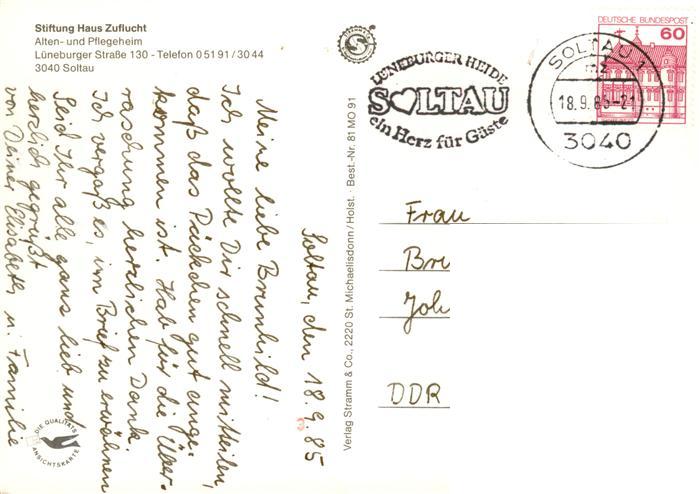 Stiftung Haus Zuflucht
Alten- und Pflegeheim
Lüneburger Straße 130 - Telefon 0 51 91 / 30 44
3040 Soltau
Soltau, den 18.9.85
Meine liebe Brunhild!
Ich wollte Dir schnell mitteilen,
daß das Päckchen gut ange-
kommen ist. Hab für die Über-
raschung herzlichen Dank.
Ich vergaß es, im Brief zu erwähnen
Seid Ihr alle ganz lieb und
herzlich gegrüßt
von Deiner Elisabeth u. Familie
DIE QUALITÄTS
ANSICHTSKARTE
Verlag Stramm & Co., 2220 St. Michaelisdonn/Holst. · Best.-Nr. 81 MO 91
LÜNEBURGER HEIDE
SOLTAU
ein Herz für Gäste
SOLTAU 1
mz
18.9.85-21
3040
DEUTSCHE BUNDESPOST
60
Frau
Bre
Joh
DDR